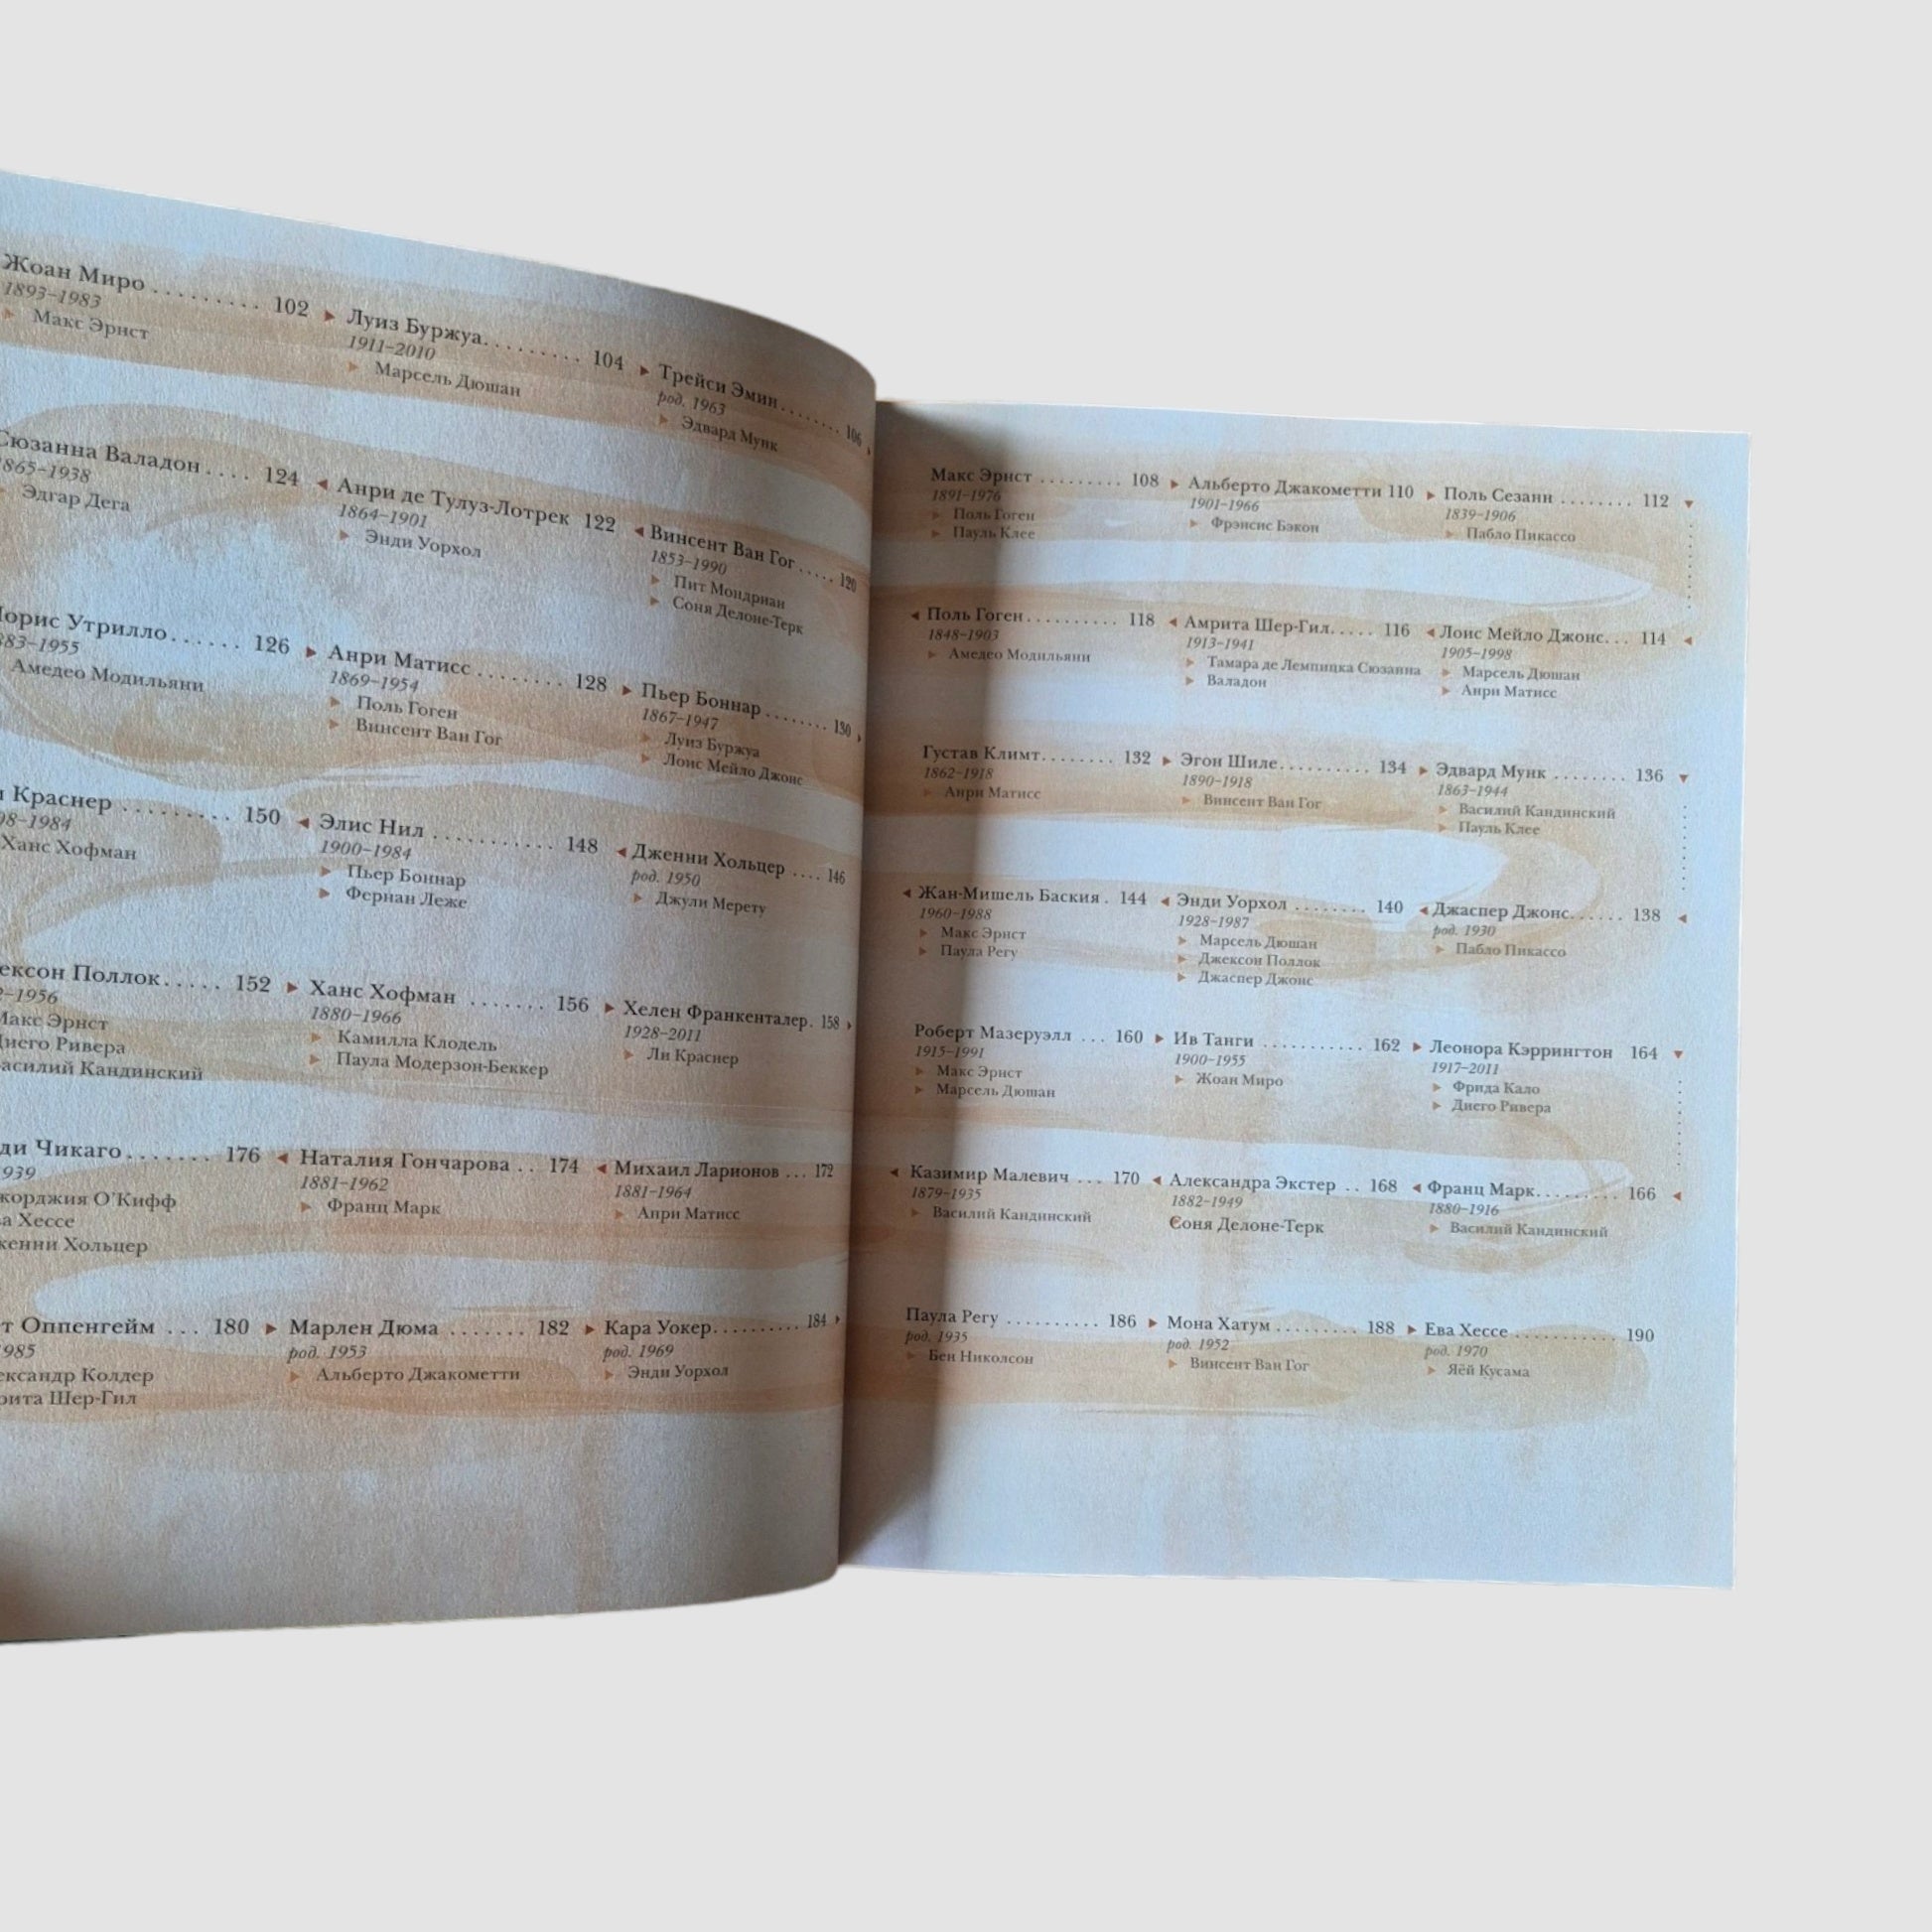 Жоан Миро ......... 102
1893–1983
Макс Эрнст
Луиз Буржуа......... 104
1911–2010
Марсель Дюшан
Трейси Эмин........ 106
род. 1963
Эдвард Мунк
Сюзанна Валадон .... 124
1865–1938
Эдгар Дега
Анри де Тулуз-Лотрек 122
1864–1901
Энди Уорхол
Винсент Ван Гог ..... 120
1853–1990
Пит Мондриан
Соня Делоне-Терк
Утрилло...... 126
83–1955
Амедео Модильяни
Анри Матисс ........ 128
1869–1954
Поль Гоген
Винсент Ван Гог
Пьер Боннар ........ 130
1867–1947
Луиз Буржуа
Лоис Мейло Джонс
Краснер .......... 150
–1984
Ханс Хофман
Элис Нил ........... 148
1900–1984
Пьер Боннар
Фернан Леже
Дженни Хольцер .... 146
род. 1950
Джули Мерету
ексон Поллок..... 152
–1956
Макс Эрнст
Диего Ривера
асилий Кандинский
Ханс Хофман ....... 156
1880–1966
Камилла Клодель
Паула Модерзон-Беккер
Хелен Франкенталер. 158
1928–2011
Ли Краснер
ди Чикаго........ 176
939
жорджия О'Кифф
ва Хессе
женни Хольцер
Наталия Гончарова .. 174
1881–1962
Франц Марк
Михаил Ларионов ... 172
1881–1964
Анри Матисс
т Оппенгейм ... 180
985
ександр Колдер
рита Шер-Гил
Марлен Дюма ....... 182
род. 1953
Альберто Джакометти
Кара Уокер.......... 184
род. 1969
Энди Уорхол
Макс Эрнст ......... 108
1891–1976
Поль Гоген
Пауль Клее
Альберто Джакометти 110
1901–1966
Фрэнсис Бэкон
Поль Сезанн ........ 112
1839–1906
Пабло Пикассо
Поль Гоген.......... 118
1848–1903
Амедео Модильяни
Амрита Шер-Гил..... 116
1913–1941
Тамара де Лемпицка Сюзанна
Валадон
Лоис Мейло Джонс... 114
1905–1998
Марсель Дюшан
Анри Матисс
Густав Климт........ 132
1862–1918
Анри Матисс
Эгон Шиле.......... 134
1890–1918
Винсент Ван Гог
Эдвард Мунк ........ 136
1863–1944
Василий Кандинский
Пауль Клее
Жан-Мишель Баския . 144
1960–1988
Макс Эрнст
Паула Регу
Энди Уорхол ........ 140
1928–1987
Марсель Дюшан
Джексон Поллок
Джаспер Джонс
Джаспер Джонс...... 138
род. 1930
Пабло Пикассо
Роберт Мазеруэлл ... 160
1915–1991
Макс Эрнст
Марсель Дюшан
Ив Танги ........... 162
1900–1955
Жоан Миро
Леонора Кэррингтон 164
1917–2011
Фрида Кало
Диего Ривера
Казимир Малевич ... 170
1879–1935
Василий Кандинский
Александра Экстер .. 168
1882–1949
Соня Делоне-Терк
Франц Марк......... 166
1880–1916
Василий Кандинский
Паула Регу .......... 186
род. 1935
Бен Николсон
Мона Хатум ......... 188
род. 1952
Винсент Ван Гог
Ева Хессе ........... 190
род. 1970
Яёй Кусама